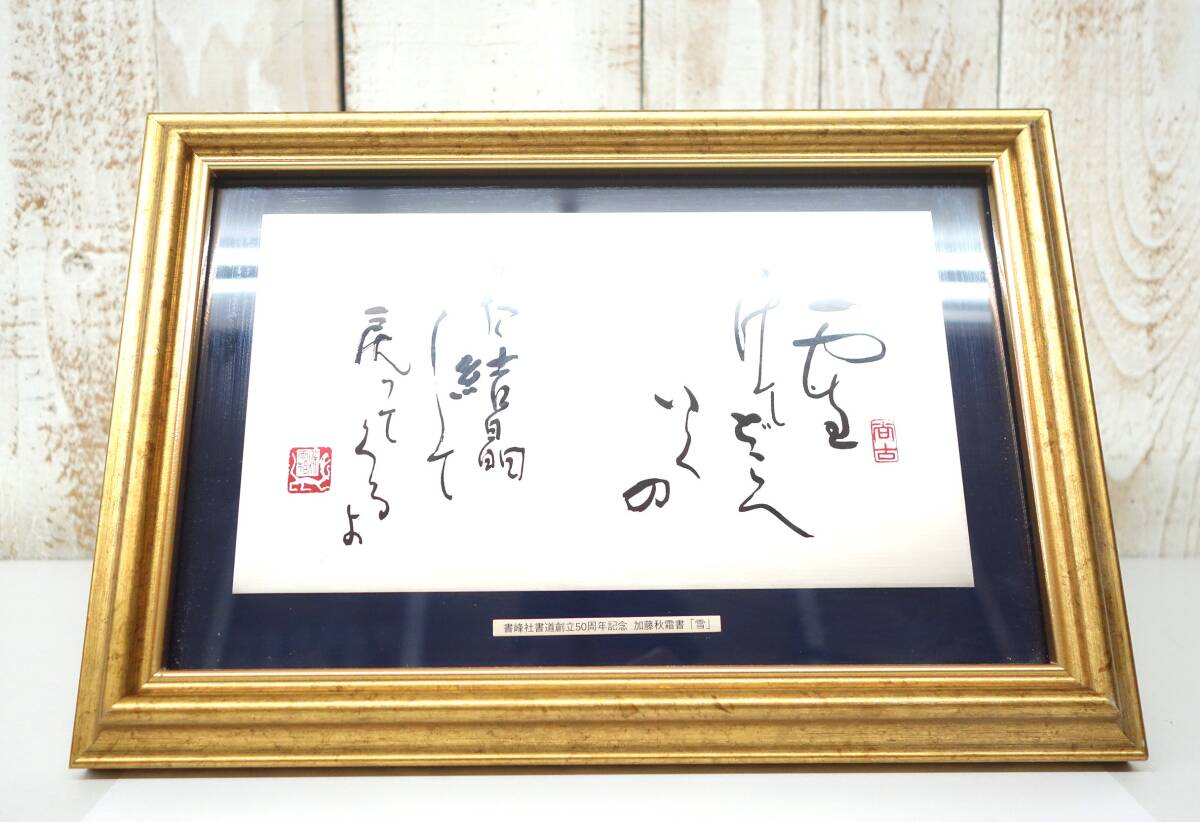 雪
けてどこへ
いくの
た結晶
して
戻ってくるよ
尚古
書峰社書道創立50周年記念 加藤秋霜書「雪」